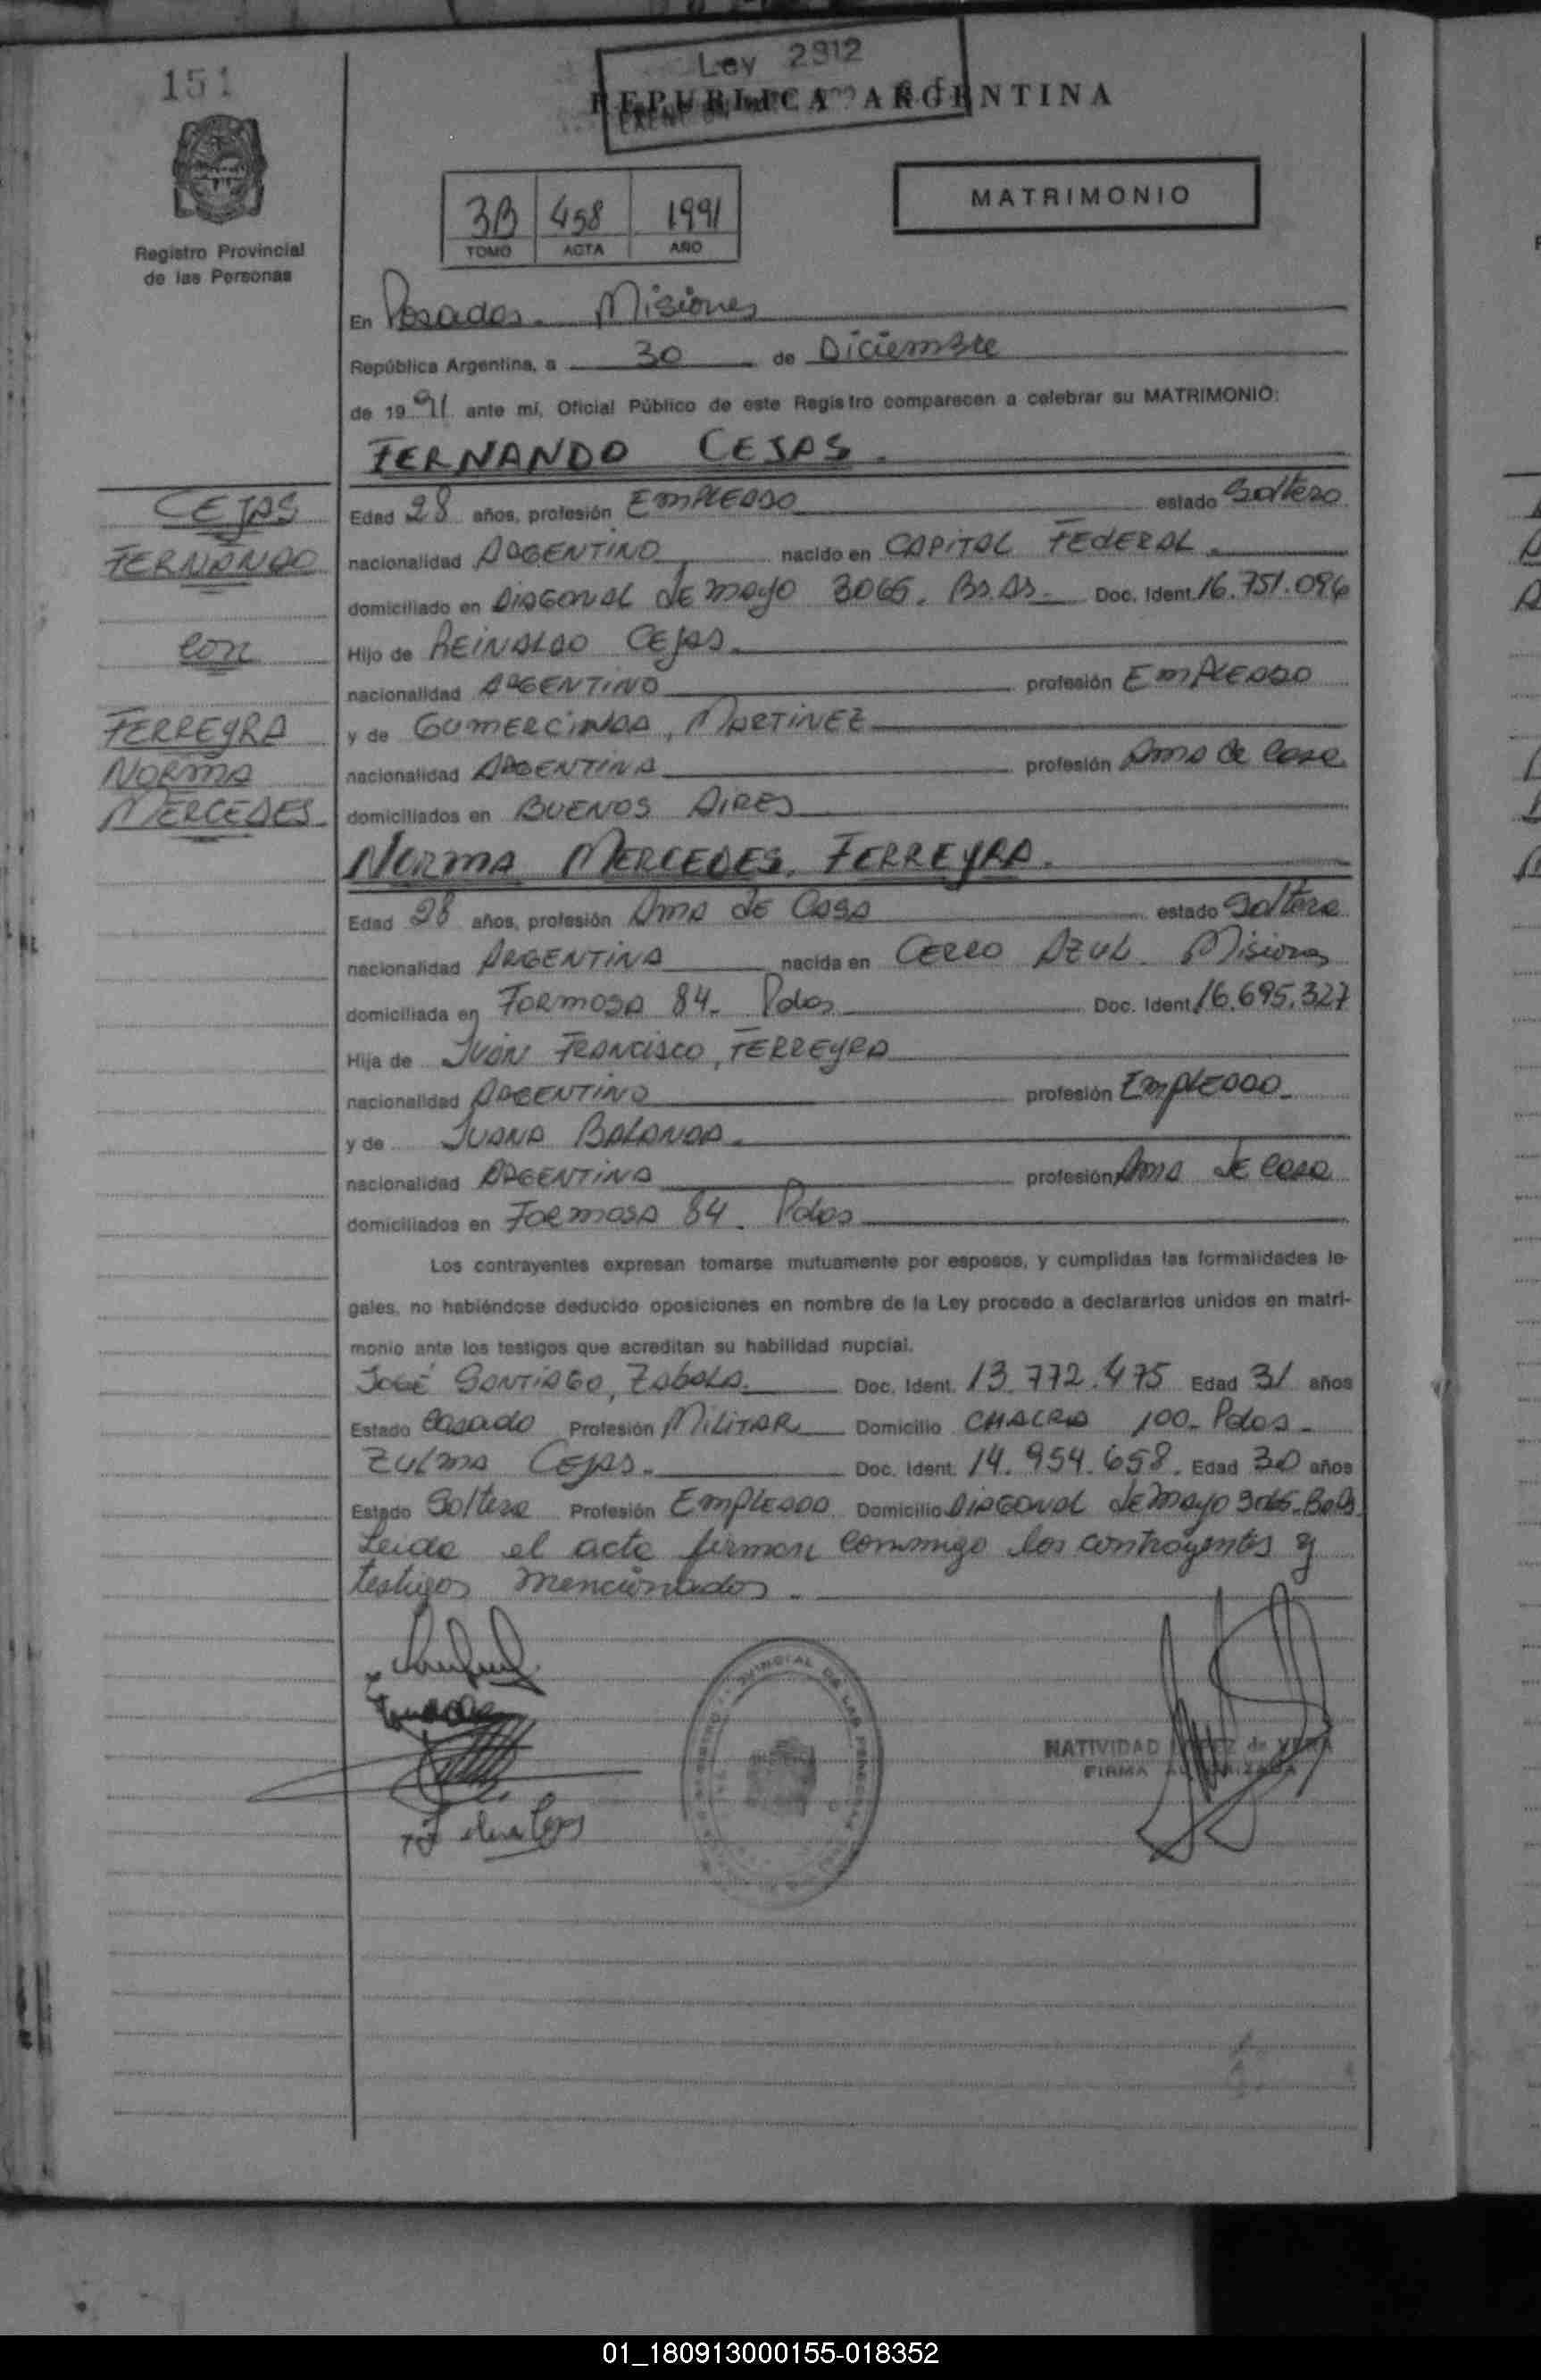 151
Ley 2912
REPUBLICA ARGENTINA
MATRIMONIO
3B 458 1991
TOMO ACTA AÑO
Registro Provincial
de las Personas
En Posadas. Misiones
República Argentina, a 30 de Diciembre
de 1991 ante mí, Oficial Público de este Registro comparecen a celebrar su MATRIMONIO:
FERNANDO CEJAS.
CEJAS
FERNANDO
con
FERREYRA
NORMA
MERCEDES
Edad 28 años, profesión EMPLEADO estado Soltero
nacionalidad ARGENTINO nacido en CAPITAL FEDERAL.
domiciliado en DIAGONAL de mayo 3065. Bs.As. Doc. Ident. 16.751.096
Hijo de REINALDO CEJAS.
nacionalidad ARGENTINO profesión EMPLEADO
y de GUMERCINDA, MARTINEZ
nacionalidad ARGENTINA profesión Ama de Casa
domiciliados en BUENOS AIRES
NORMA MERCEDES, FERREYRA.
Edad 28 años, profesión Ama de Casa estado Soltera
nacionalidad ARGENTINA nacida en CERRO AZUL. Misiones
domiciliada en FORMOSA 84. Pdas Doc. Ident. 16.695.327
Hija de JUAN FRANCISCO, FERREYRA
nacionalidad ARGENTINO profesión EMPLEADO.
y de JUANA BALANDA.
nacionalidad ARGENTINA profesión Ama de Casa
domiciliados en FORMOSA 84. Pdas
Los contrayentes expresan tomarse mutuamente por esposos, y cumplidas las formalidades le-
gales, no habiéndose deducido oposiciones en nombre de la Ley procedo a declararlos unidos en matri-
monio ante los testigos que acreditan su habilidad nupcial.
JOSÉ SANTIAGO, ZABALA. Doc. Ident. 13.772.475 Edad 31 años
Estado Casado Profesión MILITAR Domicilio CHACRA 100. Pdas.
ZULMA CEJAS. Doc. Ident. 14.954.658. Edad 30 años
Estado Soltera Profesión EMPLEADA Domicilio DIAGONAL de mayo 3065. Bs.As
Leida el acta firman conmigo los contrayentes y
testigos mencionados.
NATIVIDAD LOPEZ de VERA
FIRMA AUTORIZADA
01_180913000155-018352